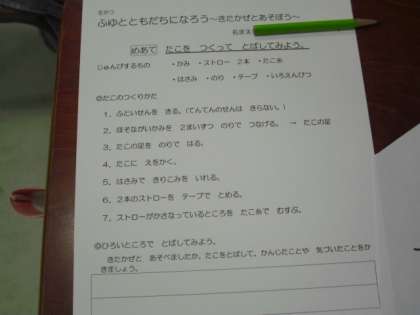 せいかつ
ふゆとともだちになろう～きたかぜとあそぼう～
名まえ
めあて たこを つくって とばしてみよう。
じゅんびするもの ・かみ ・ストロー 2本 ・たこ糸
・はさみ ・のり ・テープ ・いろえんぴつ
◎たこのつくりかた
1．ふといせんを きる。(てんてんのせんは きらない。)
2．ほそながいかみを 2まいずつ のりで つなげる。 → たこの足
3．たこの足を のりで はる。
4．たこに えをかく。
5．はさみで きりこみを いれる。
6．2本のストローを テープで とめる。
7．ストローがかさなっているところを たこ糸で むすぶ。
◎ひろいところで とばしてみよう。
きたかぜと あそべましたか。たこをとばして、かんじたことや 気づいたことをか
きましょう。